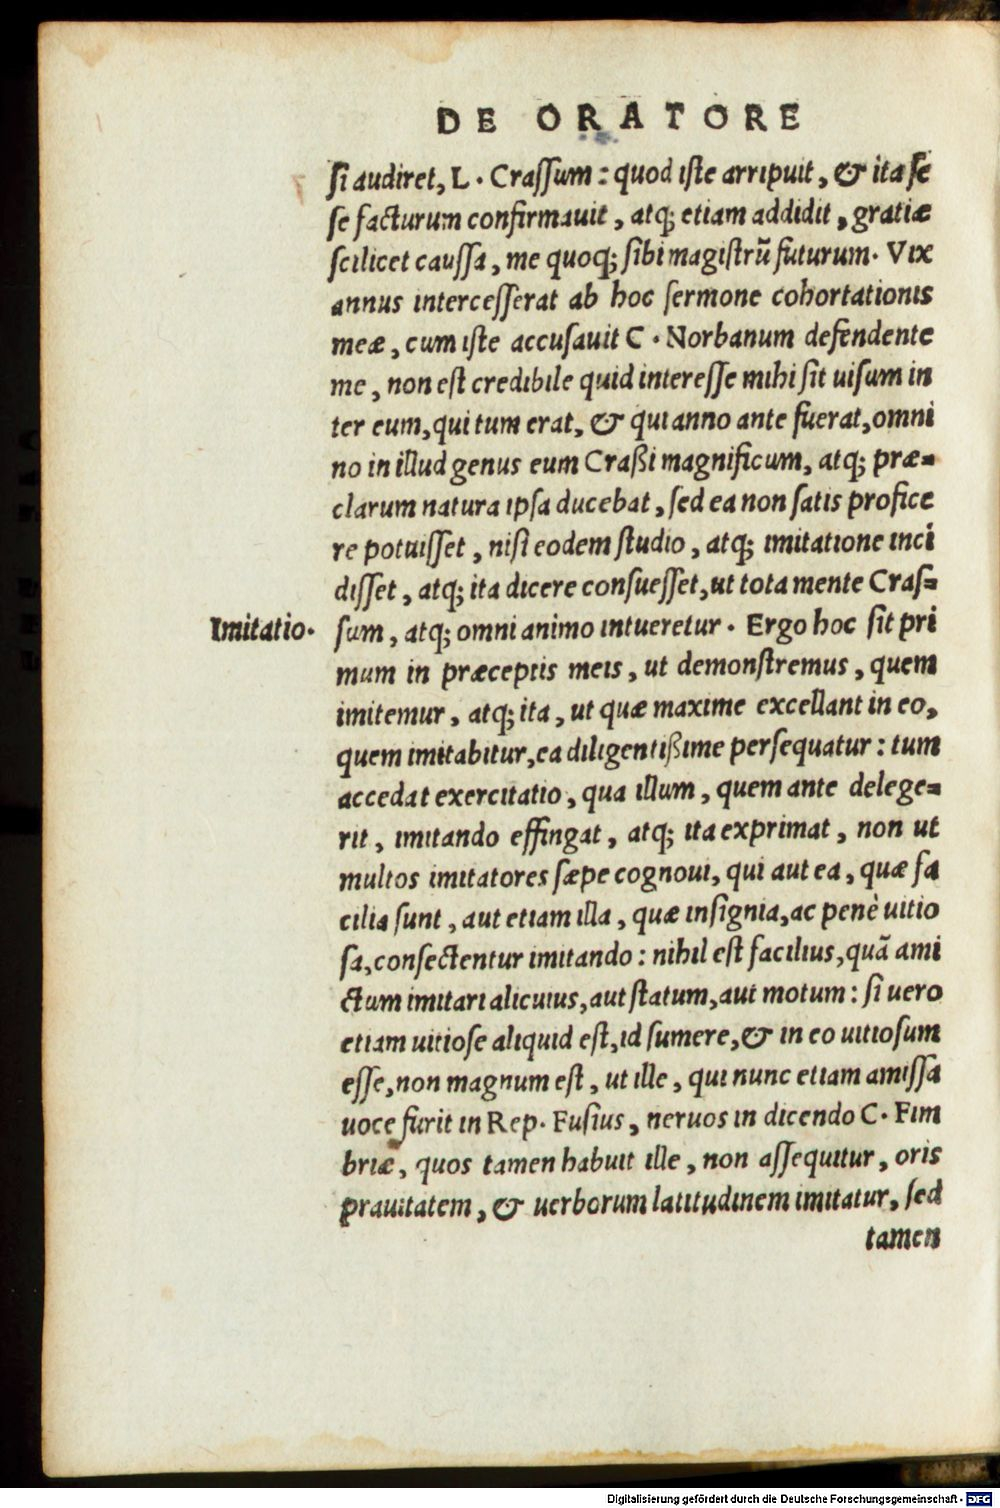 DE ORATORE
ſi audiret, L. Craſſum: quod iſte arripuit, & ita ſe
ſe facturum confirmauit, atq; etiam addidit, gratiæ
ſcilicet cauſſa, me quoq; ſibi magiſtrũ futurum. Vix
annus interceſſerat ab hoc ſermone cohortationis
meæ, cum iſte accuſauit C. Norbanum defendente
me, non eſt credibile quid intereſſe mihi ſit uiſum in
ter eum, qui tum erat, & qui anno ante fuerat, omni
no in illud genus eum Craßi magnificum, atq; præ-
clarum natura ipſa ducebat, ſed ea non ſatis profice
re potuiſſet, niſi eodem ſtudio, atq; imitatione inci
diſſet, atq; ita dicere conſueſſet, ut tota mente Craſ-
Imitatio. ſum, atq; omni animo intueretur. Ergo hoc ſit pri
mum in præceptis meis, ut demonſtremus, quem
imitemur, atq; ita, ut quæ maxime excellant in eo,
quem imitabitur, ea diligentißime perſequatur: tum
accedat exercitatio, qua illum, quem ante delege-
rit, imitando effingat, atq; ita exprimat, non ut
multos imitatores ſæpe cognoui, qui aut ea, quæ fa
cilia ſunt, aut etiam illa, quæ inſignia, ac penè uitio
ſa, conſectentur imitando: nihil eſt facilius, quã ami
ctum imitari alicuius, aut ſtatum, aut motum: ſi uero
etiam uitioſe aliquid eſt, id ſumere, & in eo uitioſum
eſſe, non magnum eſt, ut ille, qui nunc etiam amiſſa
uoce furit in Rep. Fuſius, neruos in dicendo C. Fim
briæ, quos tamen habuit ille, non aſſequitur, oris
prauitatem, & uerborum latitudinem imitatur, ſed
tamen
Digitalisierung gefördert durch die Deutsche Forschungsgemeinschaft - DFG